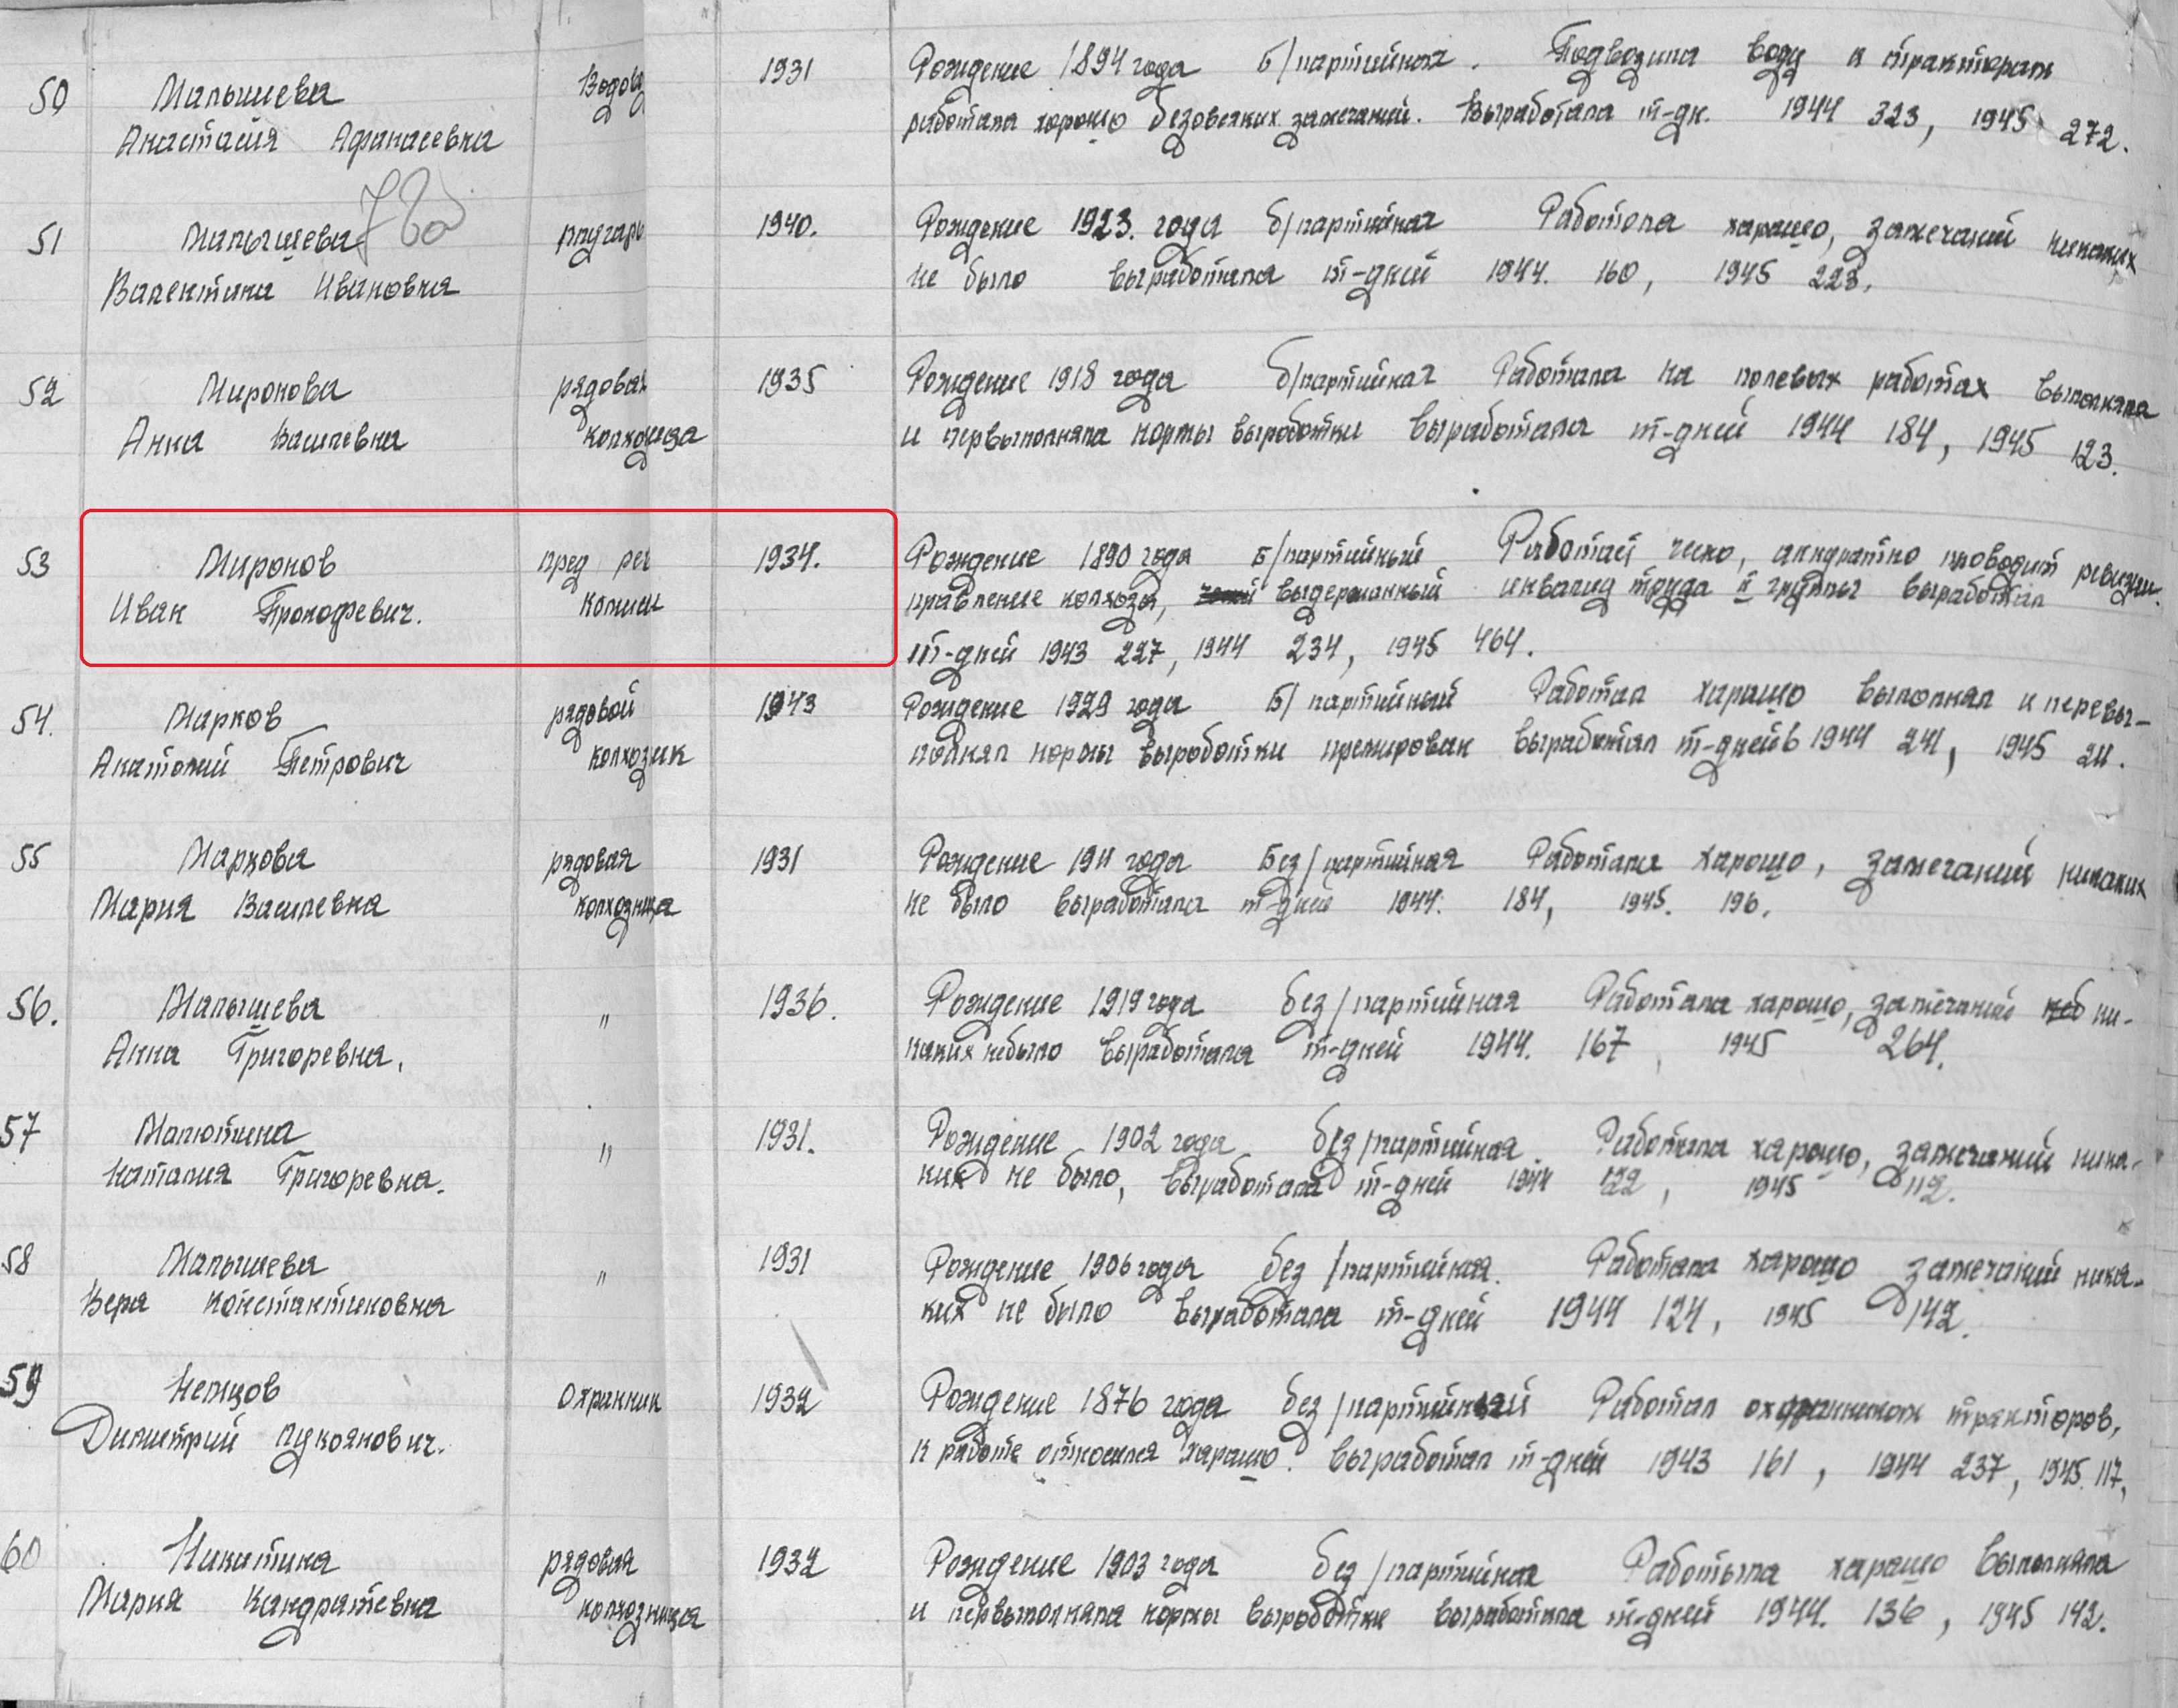 50 Малышева Водов 1931 Рождение 1894 года Б/партийная. Подвозила воду к тракторам
Анастасия Афанасевна работала хорошо безовсяких замечаний. Выработала т-дн. 1944 323, 1945 272.
51 Малышева 1940. Рождение 1923. года б/партийная Работала харашо, замечаний никаких
Валентина Ивановна не было выработала т-дней 1944. 160, 1945 223.
52 Миронова рядовая 1935 Рождение 1918 года б/партийная Работала на полевых работах выполняла
Анна Васильевна колхозница и первыполняла нормы выработки выработала т-дней 1944 184, 1945 123.
53 Миронов пред рев 1934. Рождение 1890 года Б/партийный Работает проводит ревизии.
Иван Прокофевич. комисии правление колхоза, выдержанный инвалид труда II группы выработал
т-дней 1943 227, 1944 234, 1945 464.
54. Марков рядовой 1943 Рождение 1929 года Б/партийный Работал харашо выполнял и перевы-
Анатолий Петрович колхозник полнял нормы выработки премирован выработал т-дней в 1944 241, 1945 211.
55 Маркова рядовая 1931 Рождение 1911 года Без/партийная Работала харошо, замечаний никаких
Мария Василевна колхозница не было выработала т-дней 1944. 184, 1945. 196.
56. Малышева " 1936. Рождение 1919 года без/партийная Работала харошо, замечаний ни-
Анна Григоревна. каких небыло выработала т-дней 1944. 167, 1945 264.
57 Малютина " 1931. Рождение 1902 года без/партийная. Работала харошо, замечаний ника-
Наталия Григоревна. ких не было, выработала т-дней 1944 122, 1945 112.
58 Малышева " 1931 Рождение 1906 года без/партийная. Работала харашо замечаний ника-
Вера Константиновна ких не было выработала т-дней 1944 124, 1945 142.
59 Немцов Охранник 1932 Рождение 1876 года без/партийный Работал охранником тракторов,
Димитрий Лукоянович. к работе относился харашо. выработал т-дней 1943 161, 1944 237, 1945. 117,
60 Никитина рядовая 1932 Рождение 1903 года без/партийная Работала харашо выполняла
Мария Кандратевна колхозница и первыполняла нормы выработки выработала т-дней 1944. 136, 1945 142.